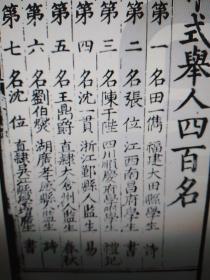 中式舉人四百名
第一名田一儁 福建大田縣學生 詩
第二名張位 江西南昌府學生 書
第三名陳于陛 四川順慶府學生 禮記
第四名沈一貫 浙江鄞縣人監生 易
第五名王鼎爵 直隸太倉州人監生 春秋
第六名劉伯燮 湖廣孝感縣 生 詩
第七名沈位 直隸吳江縣學 生 書